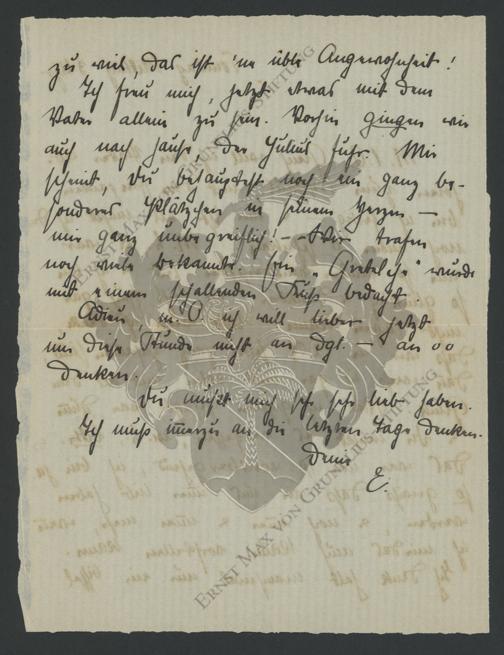 zu viel, das ist 'ne üble Angewohnheit!
Ich freu mich, jetzt etwas mit dem
Vater allein zu sein. Vorhin gingen wir
auch nach Hause der Julius fuhr. Mir
scheint, Du behauptest noch ein ganz be-
sonderes Plätzchen in seinem Herzen —
mir ganz unbegreiflich! — Wir trafen
noch viele Bekannte. Ein „Gretelche" wurde
mit einem schallenden Kuß bedacht.
Adieu m. O ich will lieber jetzt
um diese Stunde nicht an dgl. — an oo
denken.
Du mußt mich sehr sehr lieb haben.
Ich muß immerzu an die letzten Tage denken.
Deine
E.
ERNST MAX VON GRUNELIUS-STIFTUNG
ERNST MAX VON GRUNELIUS-STIFTUNG